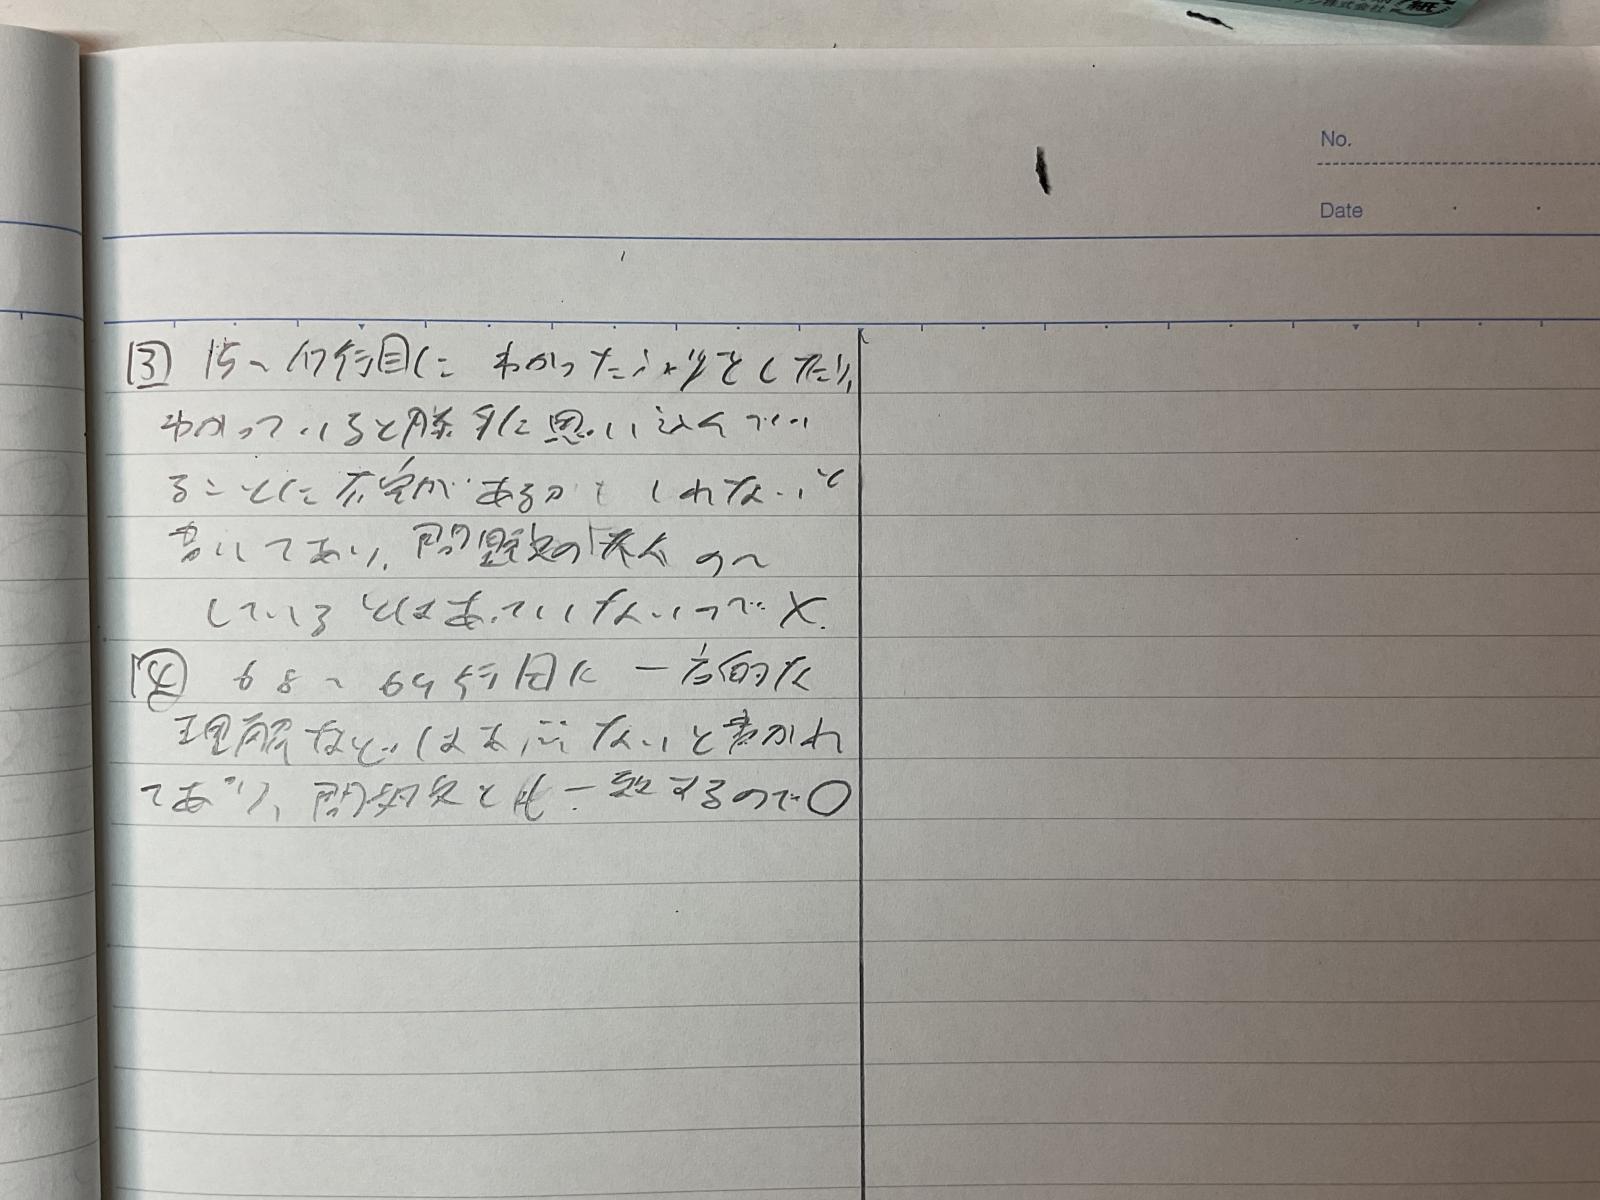 株式会社
紙
No.
Date
③ 15〜17行目に わかったふりをしたり、
わかっていると勝手に思い込んでい
ることに があるかもしれないと
書いてあり、問題文の
しているとはあっていないので×.
④ 68〜69行目に 一方的な
理解などはありえないと書かれ
てあり、問題文とも一致するので○